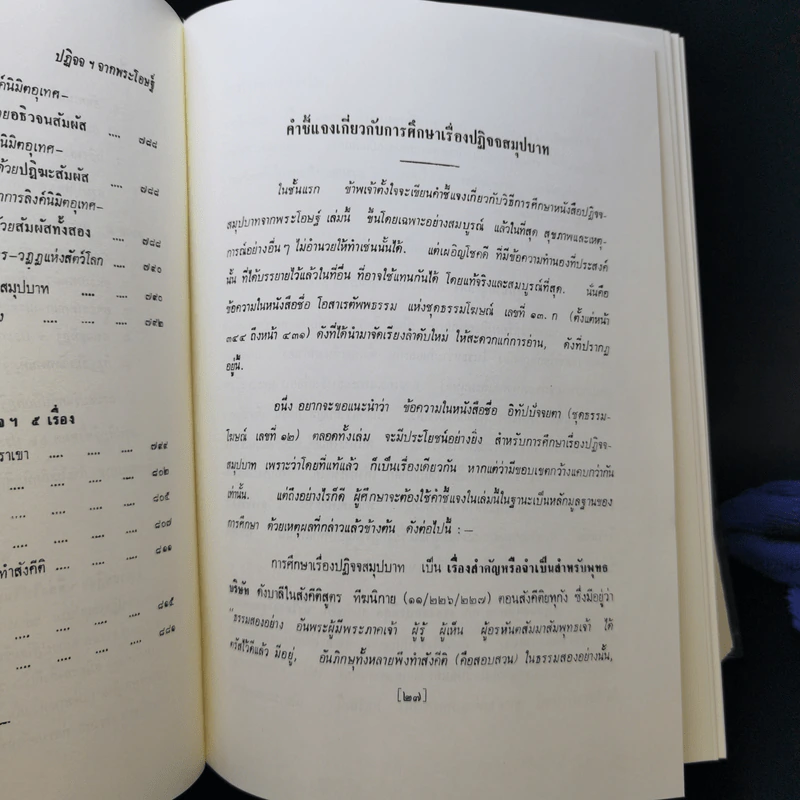 ปฏิจจ ฯ จากพระโอษฐ์
ค์นิมิตอุเทศ–
ยอธิวจนสัมผัส .... ๗๘๘
นิมิตอุเทศ–
ด้วยปฏิฆะสัมผัส .... ๗๘๘
าการลิงค์นิมิตอุเทศ–
วัยสัมผัสทั้งสอง .... ๗๘๘
ร–วฏฏแห่งสัตว์โลก .... ๗๙๐
สมุปบาท .... .... ๗๙๐
.... .... ๗๙๒
จ ฯ ๕ เรื่อง
ราเขา .... .... .... ๗๙๔
.... .... .... ๘๐๒
.... .... .... ๘๐๕
.... .... .... ๘๐๗
ทำสังคีติ .... ๘๑๑
.... .... .... ๘๑๕
.... .... .... ๘๘๑
คำชี้แจงเกี่ยวกับการศึกษาเรื่องปฏิจจสมุปบาท
ในชั้นแรก ข้าพเจ้าตั้งใจจะเขียนคำชี้แจงเกี่ยวกับวิธีการศึกษาหนังสือปฏิจจ-
สมุปบาทจากพระโอษฐ์ เล่มนี้ ขึ้นโดยเฉพาะอย่างสมบูรณ์ แล้วในที่สุด สุขภาพและเหตุ-
การณ์อย่างอื่นๆ ไม่อำนวยให้ทำเช่นนั้นได้. แต่เผอิญโชคดี ที่มีข้อความทำนองที่ประสงค์
นั้น ที่ได้บรรยายไว้แล้วในที่อื่น ที่อาจใช้แทนกันได้ โดยแท้จริงและสมบูรณ์ที่สุด. นั่นคือ
ข้อความในหนังสือชื่อ โอสาเรตัพพธรรม แห่งชุดธรรมโฆษณ์ เลขที่ ๑๓. ก (ตั้งแต่หน้า
๓๔๔ ถึงหน้า ๔๓๑) ดังที่ได้นำมาจัดเรียงลำดับใหม่ ให้สะดวกแก่การอ่าน, ดังที่ปรากฏ
อยู่นี้.
อนึ่ง อยากจะขอแนะนำว่า ข้อความในหนังสือชื่อ อิทัปปัจจยตา (ชุดธรรม-
โฆษณ์ เลขที่ ๑๒) ตลอดทั้งเล่ม จะมีประโยชน์อย่างยิ่ง สำหรับการศึกษาเรื่องปฏิจจ-
สมุปบาท เพราะว่าโดยที่แท้แล้ว ก็เป็นเรื่องเดียวกัน หากแต่ว่ามีขอบเขตกว้างแคบกว่ากัน
เท่านั้น. แต่ถึงอย่างไรก็ดี ผู้ศึกษาจะต้องใช้คำชี้แจงในเล่มนี้ในฐานะเป็นหลักมูลฐานของ
การศึกษา ด้วยเหตุผลที่กล่าวแล้วข้างต้น ดังต่อไปนี้ :–
การศึกษาเรื่องปฏิจจสมุปบาท เป็น เรื่องสำคัญหรือจำเป็นสำหรับพุทธ
บริษัท ดังบาลีในสังคีติสูตร ทีฆนิกาย (๑๑/๒๒๖/๒๒๗) ตอนสังคีติยทุกัง ซึ่งมีอยู่ว่า
"ธรรมสองอย่าง อันพระผู้มีพระภาคเจ้า ผู้รู้ ผู้เห็น ผู้อรหันตสัมมาสัมพุทธเจ้า ได้
ตรัสไว้ดีแล้ว มีอยู่, อันภิกษุทั้งหลายพึงทำสังคีติ (คือสอบสวน) ในธรรมสองอย่างนั้น,
[๒๗]